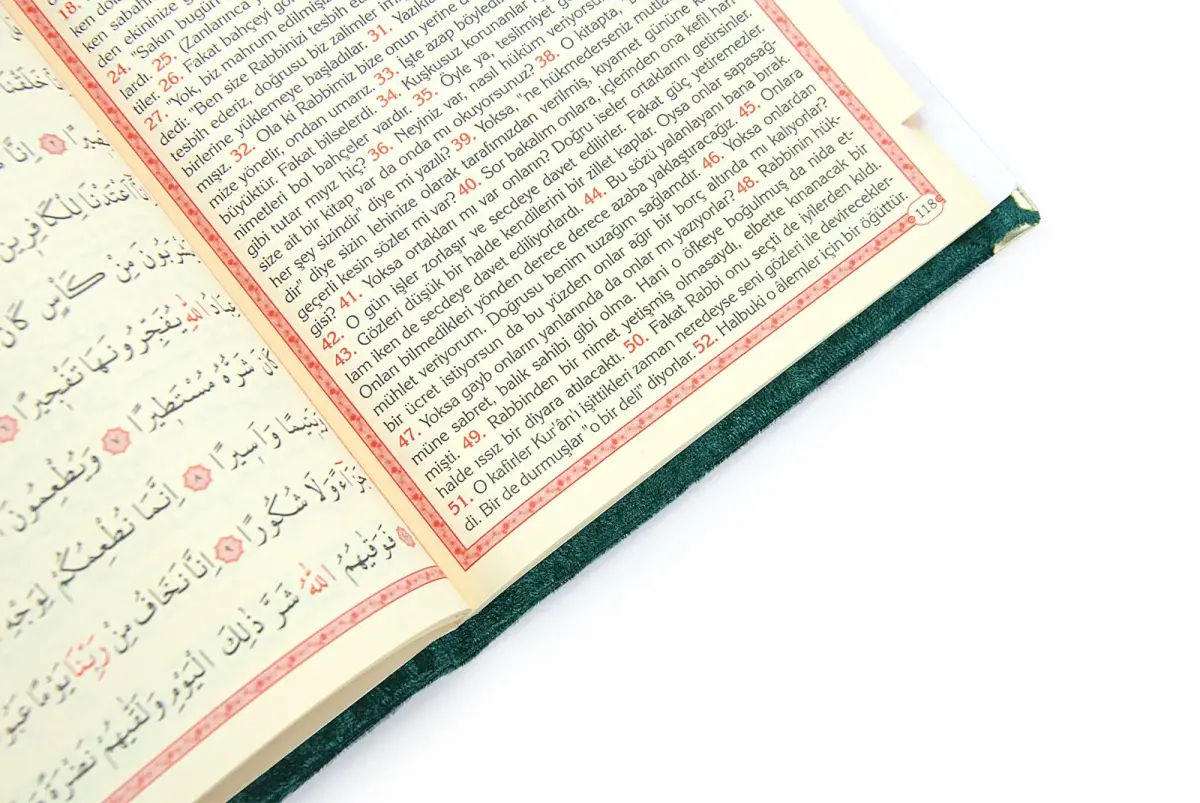 18.
ken
den ekininize
24. "Sakın bugün
lardı. 25. (Zanlarınca
tiler. 26. Fakat bahçeyi
27. "Yok, biz mahrum edilmişiz
dedi: "Ben size Rabbinizi tesbih
tesbih ederiz, doğrusu biz zalimler
birlerine yüklemeye başladılar. 31.
mışız. 32. Ola ki Rabbimiz bize onun yerine
mize yönelir, ondan umarız. 33. İşte azap böyledir
büyüktür. Fakat bilselerdi. 34. Kuşkusuz korunanlar
nimetleri bol bahçeler vardır. 35. Öyle ya, teslimiyet
gibi tutar mıyız hiç? 36. Neyiniz var, nasıl hüküm
size ait bir kitap var da onda mı okuyorsunuz? 38. O kitapta,
her şey sizindir" diye mi yazılı? 39. Yoksa, "ne hükmederseniz
dir" diye sizin lehinize olarak tarafımızdan verilmiş, kıyamet gününe
geçerli kesin sözler mi var? 40. Sor bakalım onlara, içlerinden ona kefil han-
gisi? 41. Yoksa ortakları mı var onların? Doğru iseler ortaklarını getirsinler.
42. O gün işler zorlaşır ve secdeye davet edilirler. Fakat güç yetiremezler.
43. Gözleri düşük bir halde kendilerini bir zillet kaplar. Oysa onlar sapasağ-
lam iken de secdeye davet ediliyorlardı. 44. Bu sözü yalanlayanı bana bırak
Onları bilmedikleri yönden derece derece azaba yaklaştıracağız. 45. Onlara
mühlet veriyorum. Doğrusu benim tuzağım sağlamdır. 46. Yoksa onlardan
bir ücret istiyorsun da bu yüzden onlar ağır bir borç altında mı kalıyorlar?
47. Yoksa gayb onların yanlarında da onlar mı yazıyorlar? 48. Rabbinin hük-
müne sabret, balık sahibi gibi olma. Hani o öfkeye boğulmuş da nida et-
mişti. 49. Rabbinden bir nimet yetişmiş olmasaydı, elbette kınanacak bir
halde ıssız bir diyara atılacaktı. 50. Fakat Rabbi onu seçti de iyilerden kıldı.
51. O kafirler Kur'ân'ı işittikleri zaman neredeyse seni gözleri ile devirecekler-
di. Bir de durmuşlar "o bir deli" diyorlar. 52. Halbuki o âlemler için bir öğüttür.
118
٢ اِنَّا
اَعْتَدْنَا لِلْكَافِرِينَ
يَشْرَبُونَ مِنْ كَأْسٍ كَانَ
اللّٰهِ يُفَجِّرُونَهَا تَفْجِيرًا ٦
كَانَ شَرُّهُ مُسْتَطِيرًا ٧ وَيُطْعِمُونَ
وَيَتِيمًا وَاَسِيرًا ٨ اِنَّمَا نُطْعِمُكُمْ لِوَجْهِ
جَزَٓاءً وَلَا شُكُورًا ٩ اِنَّا نَخَافُ مِنْ رَبِّنَا يَوْمًا
فَوَقٰيهُمُ اللّٰهُ شَرَّ ذٰلِكَ الْيَوْمِ وَلَقّٰيهُمْ نَضْرَةً